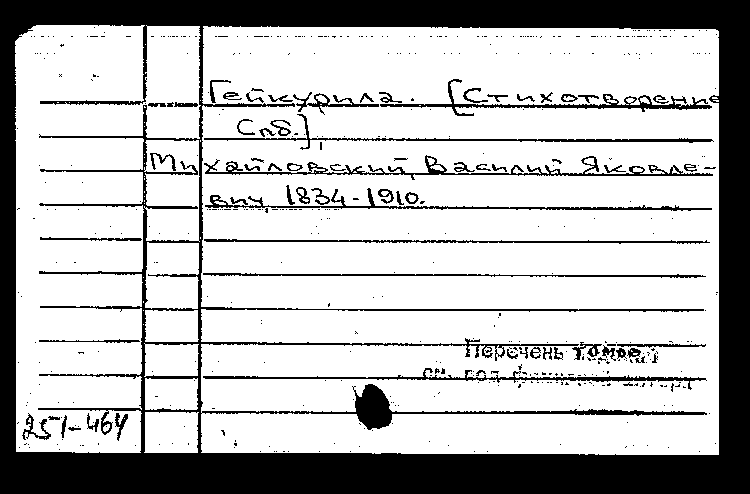 Гейкурила. [Стихотворение
Спб.],
Михайловский, Василий Яковле-
вич, 1834-1910.
Перечень томов
см.
251-464